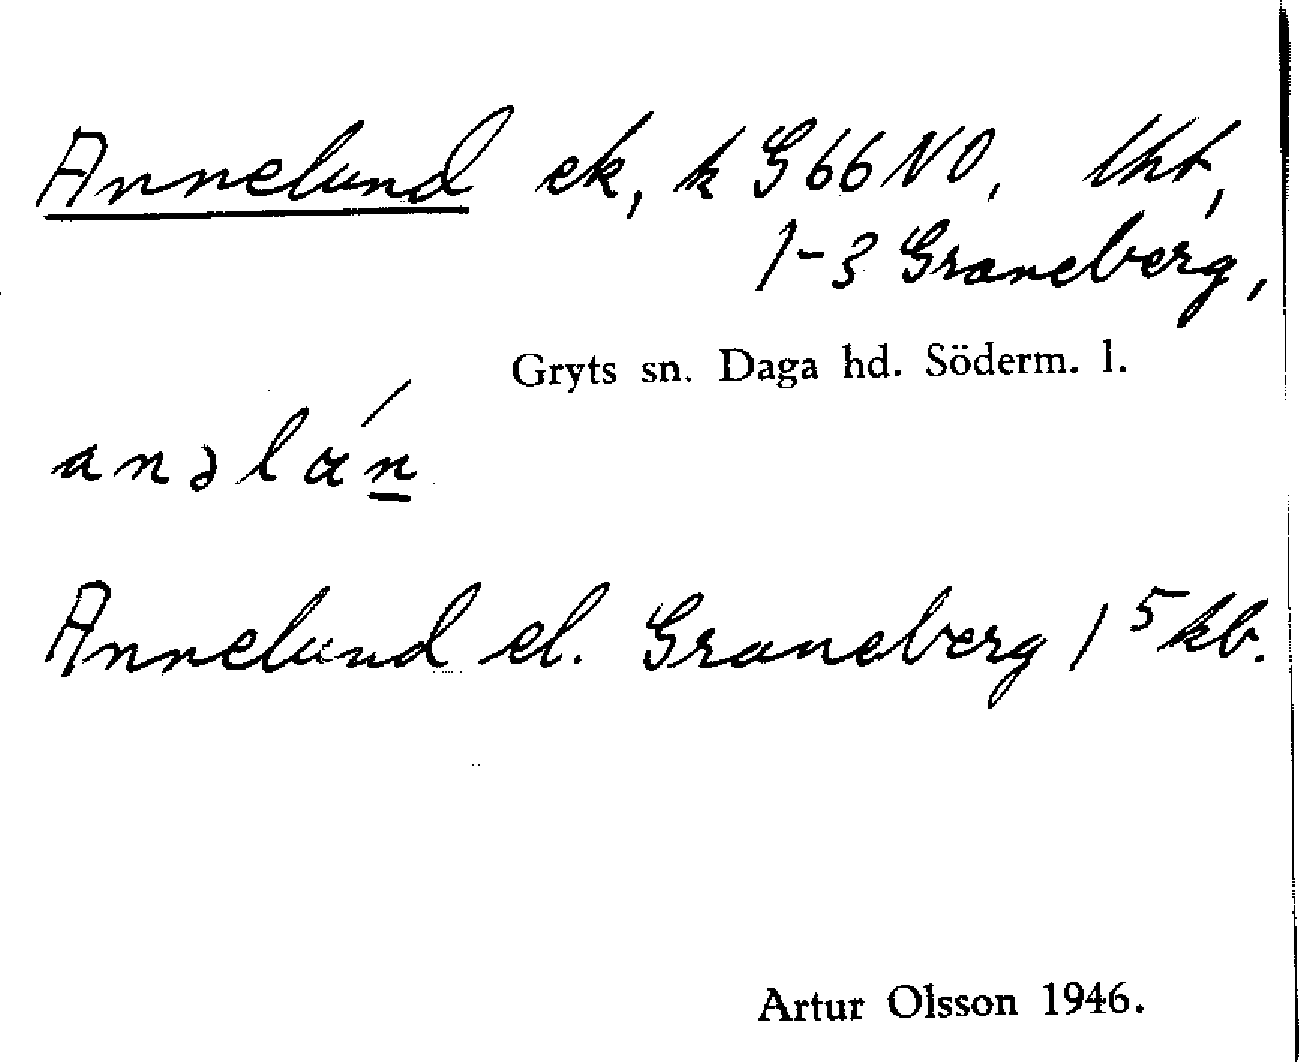 Annelund ek, k G 66 NO, lht,
1-3 Graneberg,
Gryts sn. Daga hd. Söderm. l.
anəlán
Annelund el. Graneberg 1⁵ kb.
Artur Olsson 1946.